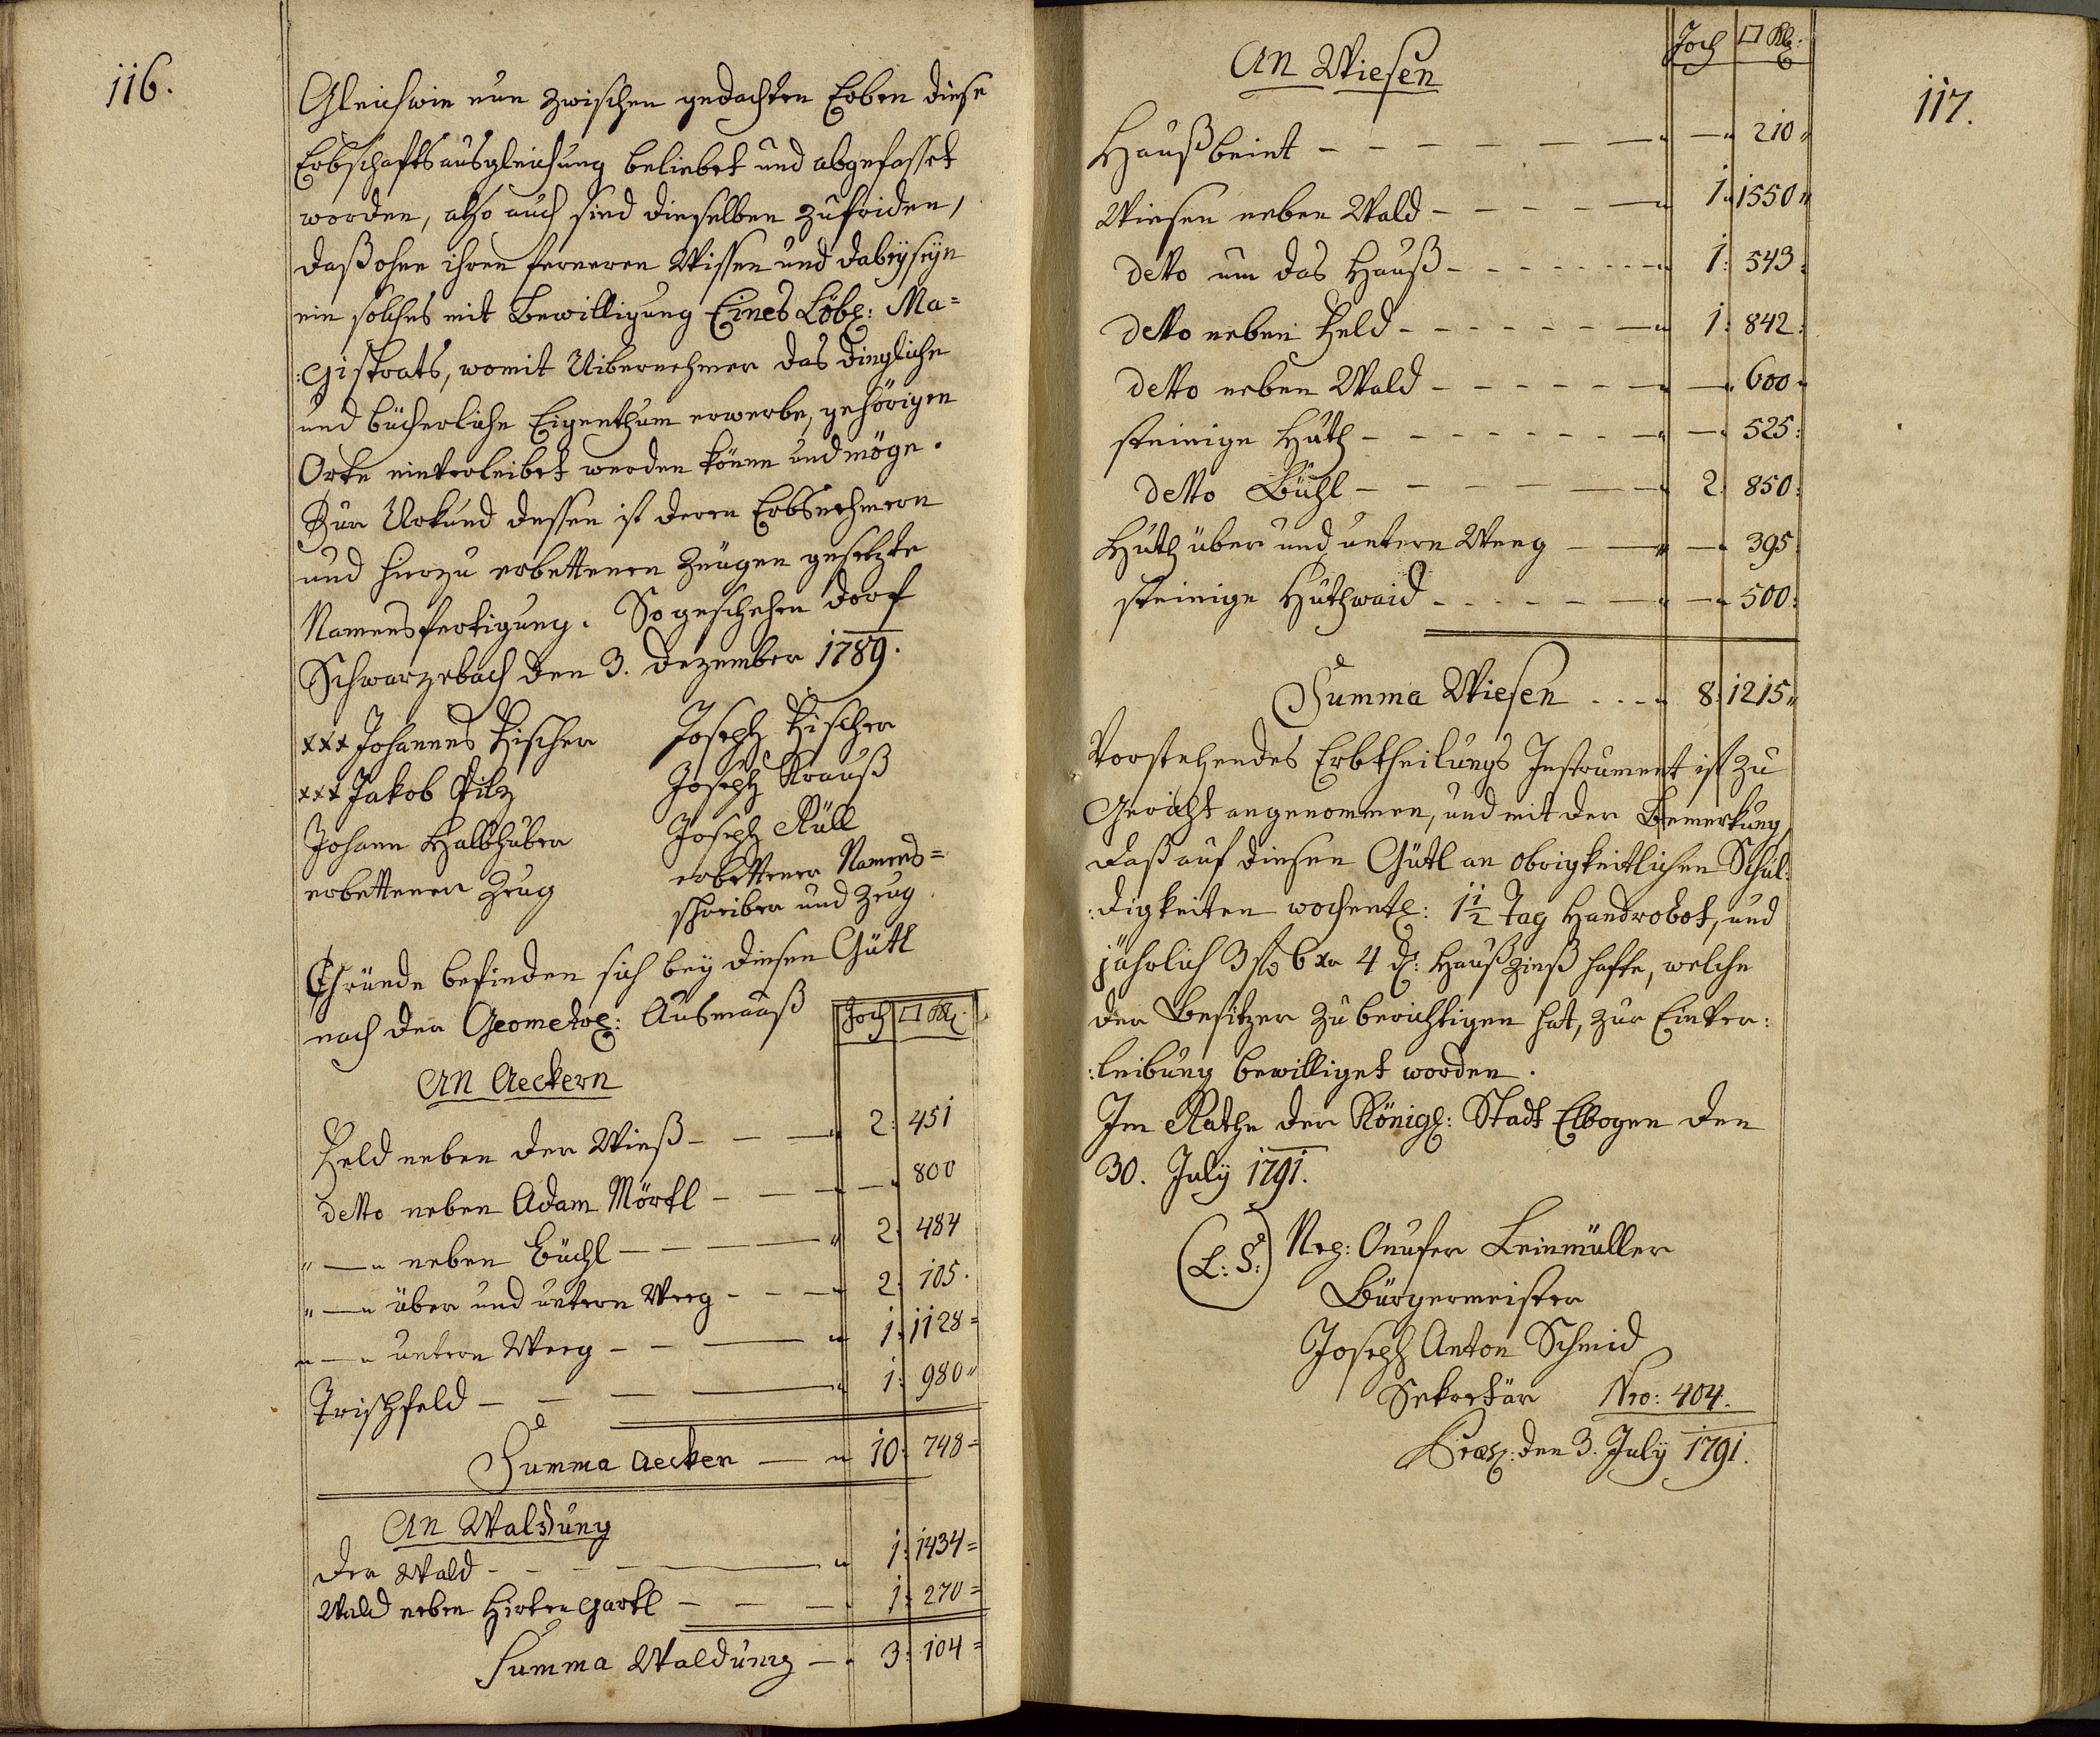 116.
Gleichwie nun zwischen gedachten Erben diese
Erbschaftsausgleichung beliebet und abgefasset
worden, also auch sind dieselben zufriden,
daß ohne ihren ferneren Wissen und dabeyseyn
ein solches mit Bewilligung Eines Löbl: Ma=
:gistrats, womit Uibernehmer das dingliche
und bücherliche Eigenthum erwerbe, gehörigen
Orts einverleibet werden könne und möge.
Zur Urkund dessen ist deren Erbsnehmern
und hierzu erbettenen Zeugen gesetzte
Namensfertigung. So geschehen dorf
Schwarzebach den 3. dezember 1789.
xxx Johannes Fischer Joseph Fischer
xxx Jakob Pilz Joseph Krauß
Johann Halbhuber Joseph Rüll
erbettener Zeug erbettener Namens=
schreiber und Zeug
Gründe befinden sich bey diesen Gütl
nach der Geometrl: Ausmaaß Joch □ Kl:
An Aeckern
Feld neben der Wieß - - — 2: 451
detto neben Adam Mörtl - — - — 800
" — " neben Büchl - - - — 2: 484
" — " über und untern Weeg - - - 2: 105.
" — " untern Weeg - - — 1: 1128=
Trischfeld - - — — 1: 980"
Summa Aecker — 10: 748=
An Waldung
Der Wald - - - — 1: 1434=
Wald neben Hirtengartl - - - 1: 270=
Summa Waldung — 3: 104=
117.
An Wiesen Joch □ Kl:
Haußbeint - - - - - — — 210"
Wiesen neben Wald - - - - — 1 1550"
detto um das Hauß - - - - - - 1: 543:
detto neben Feld - - - - - — 1: 842:
detto neben Wald - - - - - — — 600
steinige Huth - - - - - - — — 525:
detto Bühl - - - - — 2 850:
Huth über und untern Weeg — — 395
steinige Huthwaid - - - - - — — 500:
Summa Wiesen . . . 8: 1215"
Vorstehendes Erbtheilungs Instrument ist zu
Gericht angenommen, und mit der Bemerkung,
daß auf diesen Gütl an obrigkeitlichen Schul:
:digkeiten wochentl: 1 1/2 Tag Handrobot, und
jährlich 3 fl 6 xr 4 d: Haußzinß hafte, welche
der Besitzer zu berichtigen hat, zur Einver:
:leibung bewilliget worden.
Im Rathe der Königl: Stadt Elbogen den
30. July 1791.
(L: S:) Nep: Onufer Leinmüller
Bürgermeister
Joseph Anton Schmid
Sekretär Nro: 404.
Præs: den 3. July 1791.